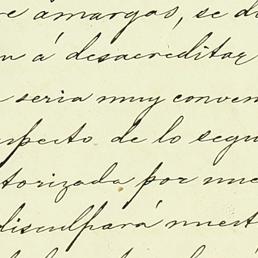 re amargos, se d
n á desacreditar
seria muy conven
specto de lo segu
torizada por nue
disculpará nuest